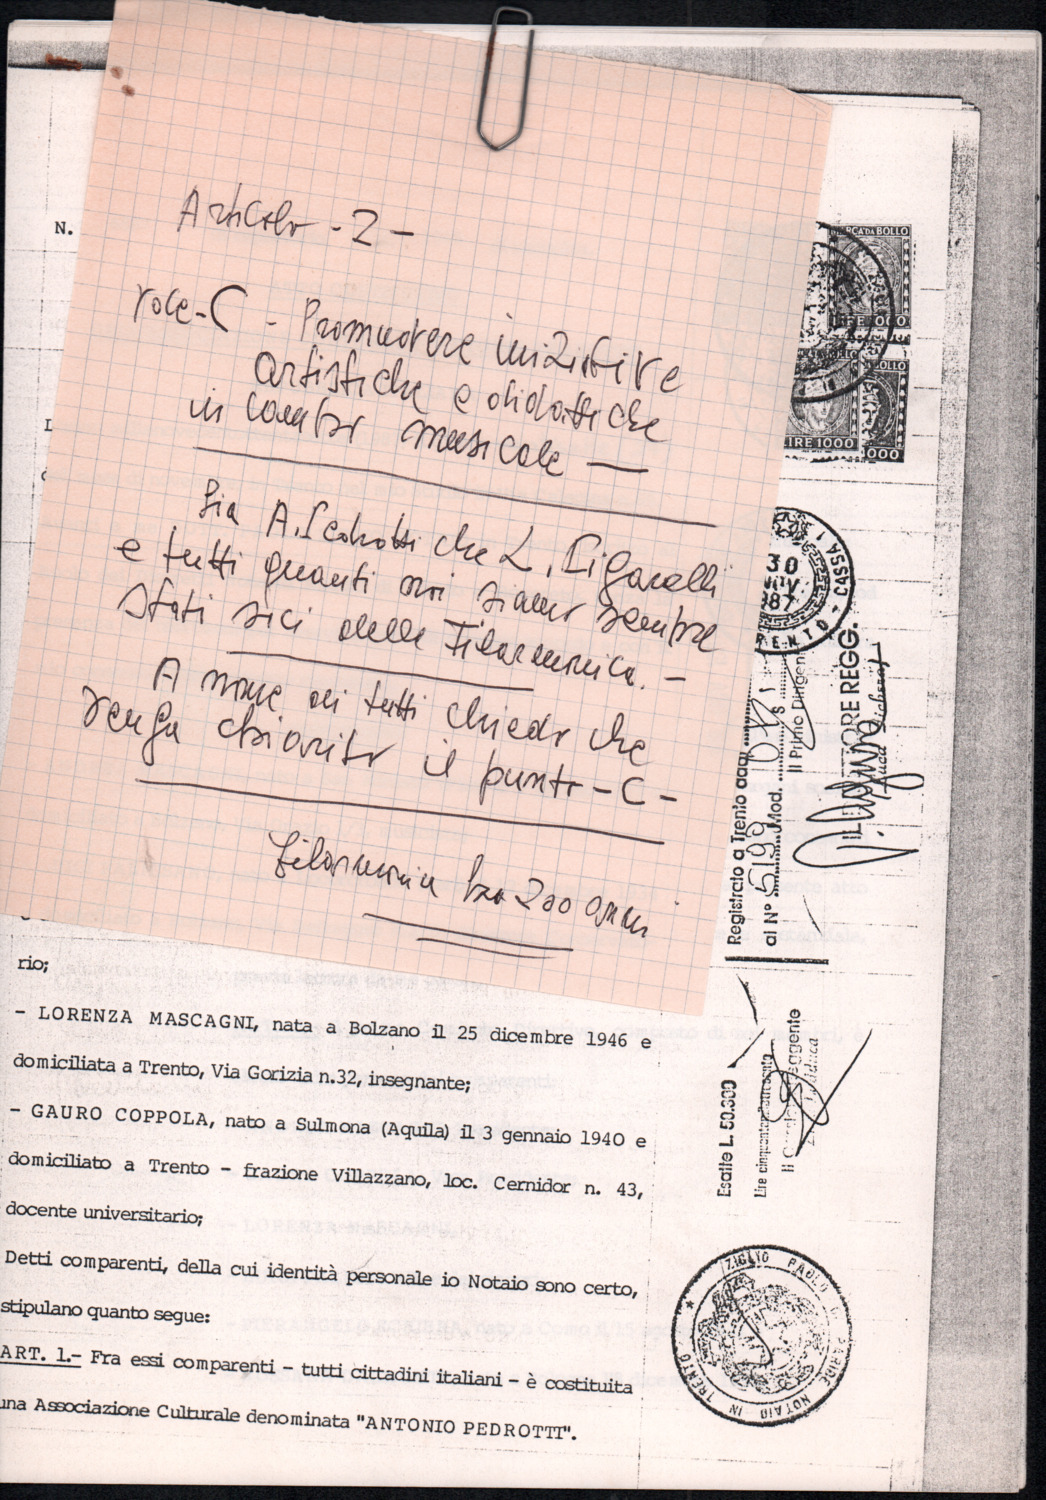 Articolo - 2 -
voce - C - Promuovere iniziative
artistiche e didattiche
in campo musicale —
Sia A. Pedrotti che L. Pigarelli
e tutti quanti noi siamo sempre
stati soci della Filarmonica. -
A nome di tutti chiedo che
venga chiarito il punto - C -
Filarmonica ha 200 anni
N.
rio;
- LORENZA MASCAGNI, nata a Bolzano il 25 dicembre 1946 e
domiciliata a Trento, Via Gorizia n.32, insegnante;
- GAURO COPPOLA, nato a Sulmona (Aquila) il 3 gennaio 1940 e
domiciliato a Trento - frazione Villazzano, loc. Cernidor n. 43,
docente universitario;
Detti comparenti, della cui identità personale io Notaio sono certo,
stipulano quanto segue:
ART. 1.- Fra essi comparenti - tutti cittadini italiani - è costituita
una Associazione Culturale denominata "ANTONIO PEDROTTI".
MARCA DA BOLLO
LIRE 1000
30
87
TRENTO - CASSA
Registrato a Trento addì
al N° 5199 Mod.
Il Primo Dirigente
IL DIRETTORE REGG.
Esatte L. 50.300
Reggente
ZIGLIO PAOLO DI PARIDE NOTAIO IN TRENTO